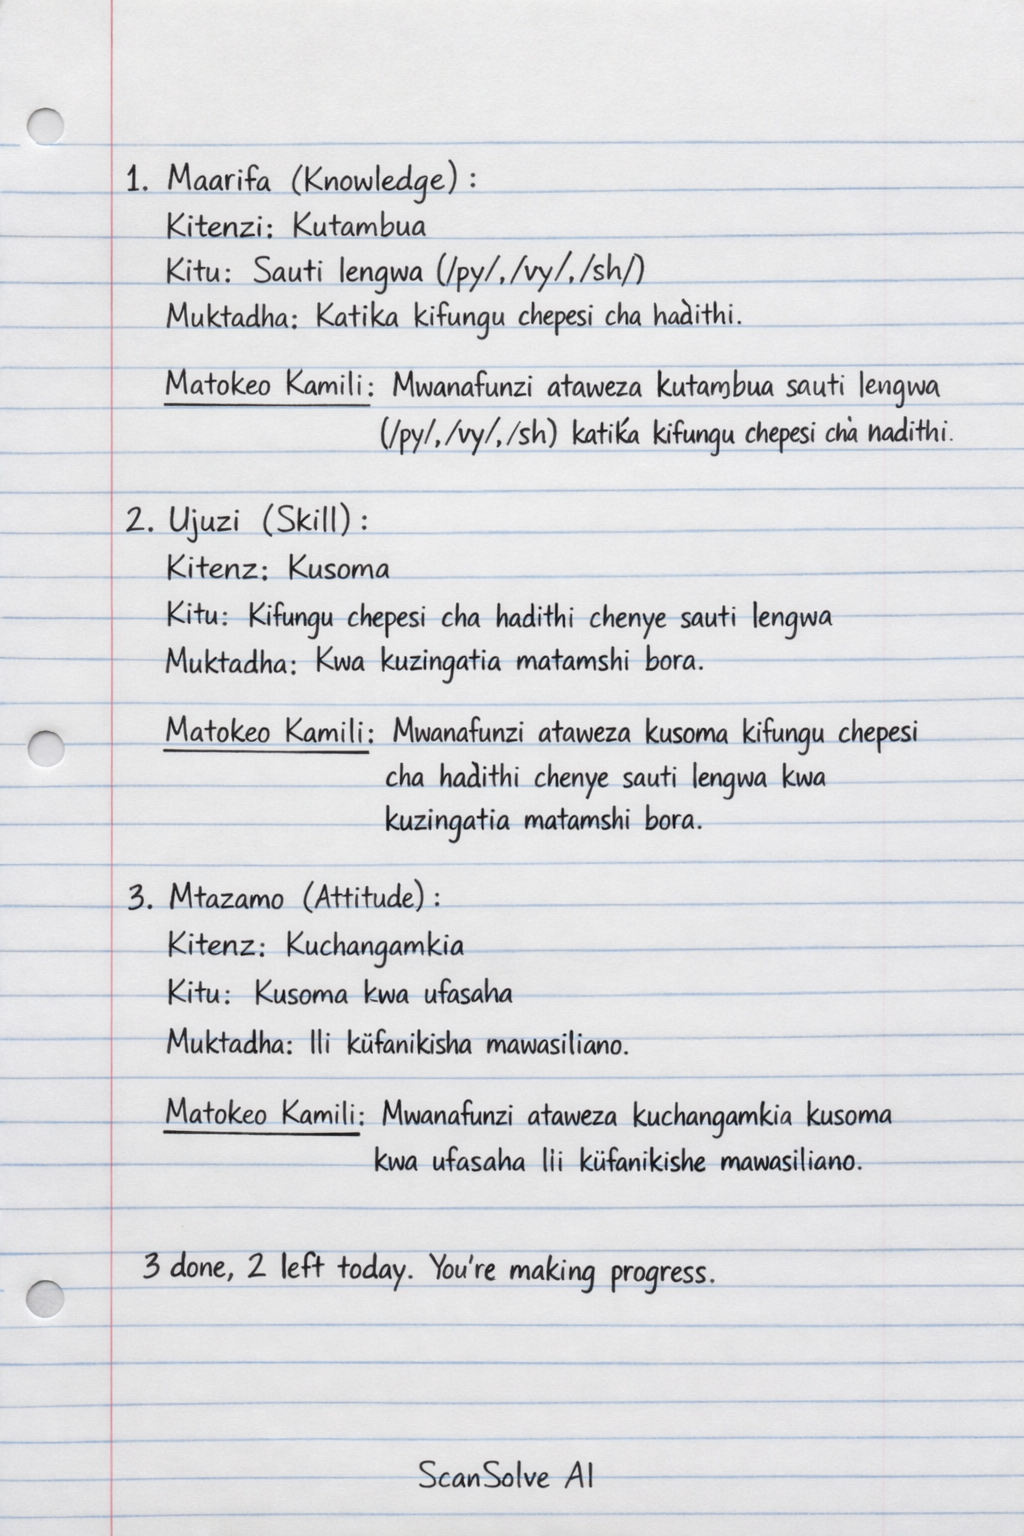 1. Maarifa (Knowledge) :
Kitenzi: Kutambua
Kitu: Sauti lengwa (/py/, /vy/, /sh/)
Muktadha: Katika kifungu chepesi cha hadithi.
Matokeo Kamili: Mwanafunzi ataweza kutambua sauti lengwa
(/py/, /vy/, /sh) katika kifungu chepesi cha nadithi.
2. Ujuzi (Skill) :
Kitenz: Kusoma
Kitu: Kifungu chepesi cha hadithi chenye sauti lengwa
Muktadha: Kwa kuzingatia matamshi bora.
Matokeo Kamili: Mwanafunzi ataweza kusoma kifungu chepesi
cha hadithi chenye sauti lengwa kwa
kuzingatia matamshi bora.
3. Mtazamo (Attitude) :
Kitenz: Kuchangamkia
Kitu: Kusoma kwa ufasaha
Muktadha: Ili küfanikisha mawasiliano.
Matokeo Kamili: Mwanafunzi ataweza kuchangamkia kusoma
kwa ufasaha lii küfanikishe mawasiliano.
3 done, 2 left today. You're making progress.
ScanSolve AI